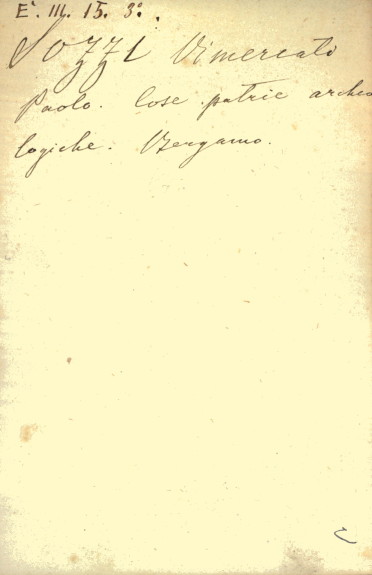 E. III. 15. 3º.
Sozzi Vimercati
Paolo. Cose patrie archeo
logiche. Bergamo.